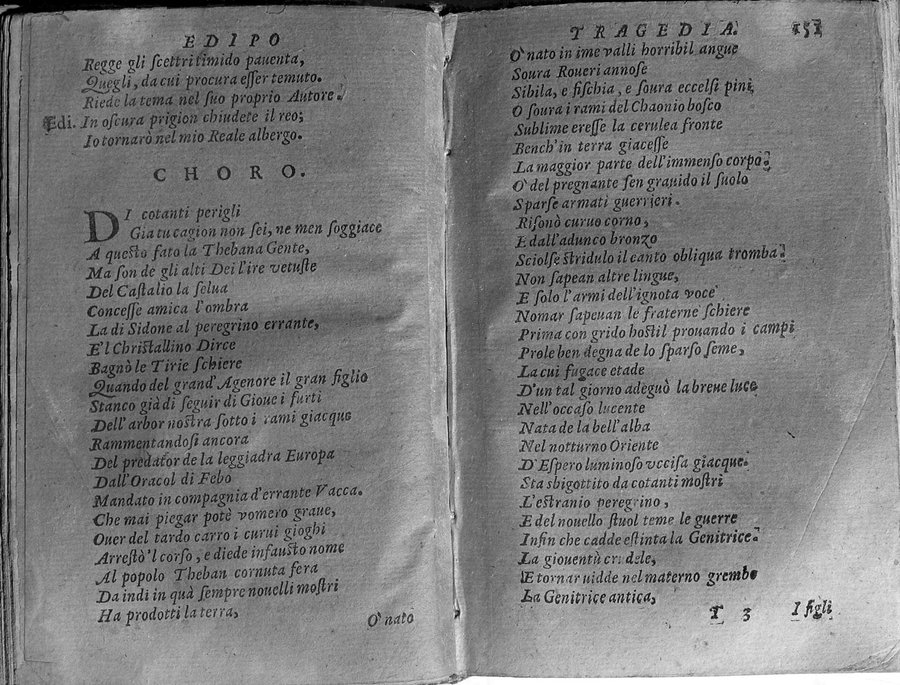 EDIPO
Regge gli ſcettri timido pauenta,
Quegli, da cui procura eſſer temuto.
Riede la tema nel ſuo proprio Autore.
Edi. In oſcura prigion chiudete il reo;
Io tornarò nel mio Reale albergo.
CHORO.
DI cotanti perigli
Gia tu cagion non ſei, ne men ſoggiace
A queſto fato la Thebana Gente,
Ma ſon de gli alti Dei l'ire vetuſte
Del Caſtalio la ſelua
Conceſſe amica l'ombra
La di Sidone al peregrino errante,
E'l Chriſtallino Dirce
Bagnò le Tirie ſchiere
Quando del grand' Agenore il gran figlio
Stanco già di ſeguir di Gioue i furti
Dell'arbor noſtra ſotto i rami giacque
Rammentandoſi ancora
Del predator de la leggiadra Europa
Dall'Oracol di Febo
Mandato in compagnia d'errante Vacca.
Che mai piegar potè vomero graue,
Ouer del tardo carro i curui gioghi
Arreſtò 'l corſo, e diede infauſto nome
Al popolo Theban cornuta fera
Da indi in quà ſempre nouelli moſtri
Ha prodotti la terra,
O' nato
TRAGEDIA. 151
O' nato in ime valli horribil angue
Soura Roueri annoſe
Sibila, e fiſchia, e ſoura eccelſi pini,
O ſoura i rami del Chaonio boſco
Sublime ereſſe la cerulea fronte
Bench' in terra giaceſſe
La maggior parte dell'immenſo corpo.
O' del pregnante ſen grauido il ſuolo
Sparſe armati guerrieri.
Riſonò curuo corno,
E dall'adunco bronzo
Sciolſe ſtridulo il canto obliqua tromba.
Non ſapean altre lingue,
E ſolo l'armi dell'ignota voce
Nomar ſapeuan le fraterne ſchiere
Prima con grido hoſtil prouando i campi
Prole ben degna de lo ſparſo ſeme,
La cui fugace etade
D'un tal giorno adeguò la breue luce
Nell'occaſo lucente
Nata de la bell'alba
Nel notturno Oriente
D'Eſpero luminoſo vcciſa giacque.
Sta sbigottito da cotanti moſtri
L'eſtranio peregrino,
E del nouello ſtuol teme le guerre
Infin che cadde eſtinta la Genitrice.
La giouentù crudele,
E tornar uidde nel materno grembo
La Genitrice antica,
T 3 I figli